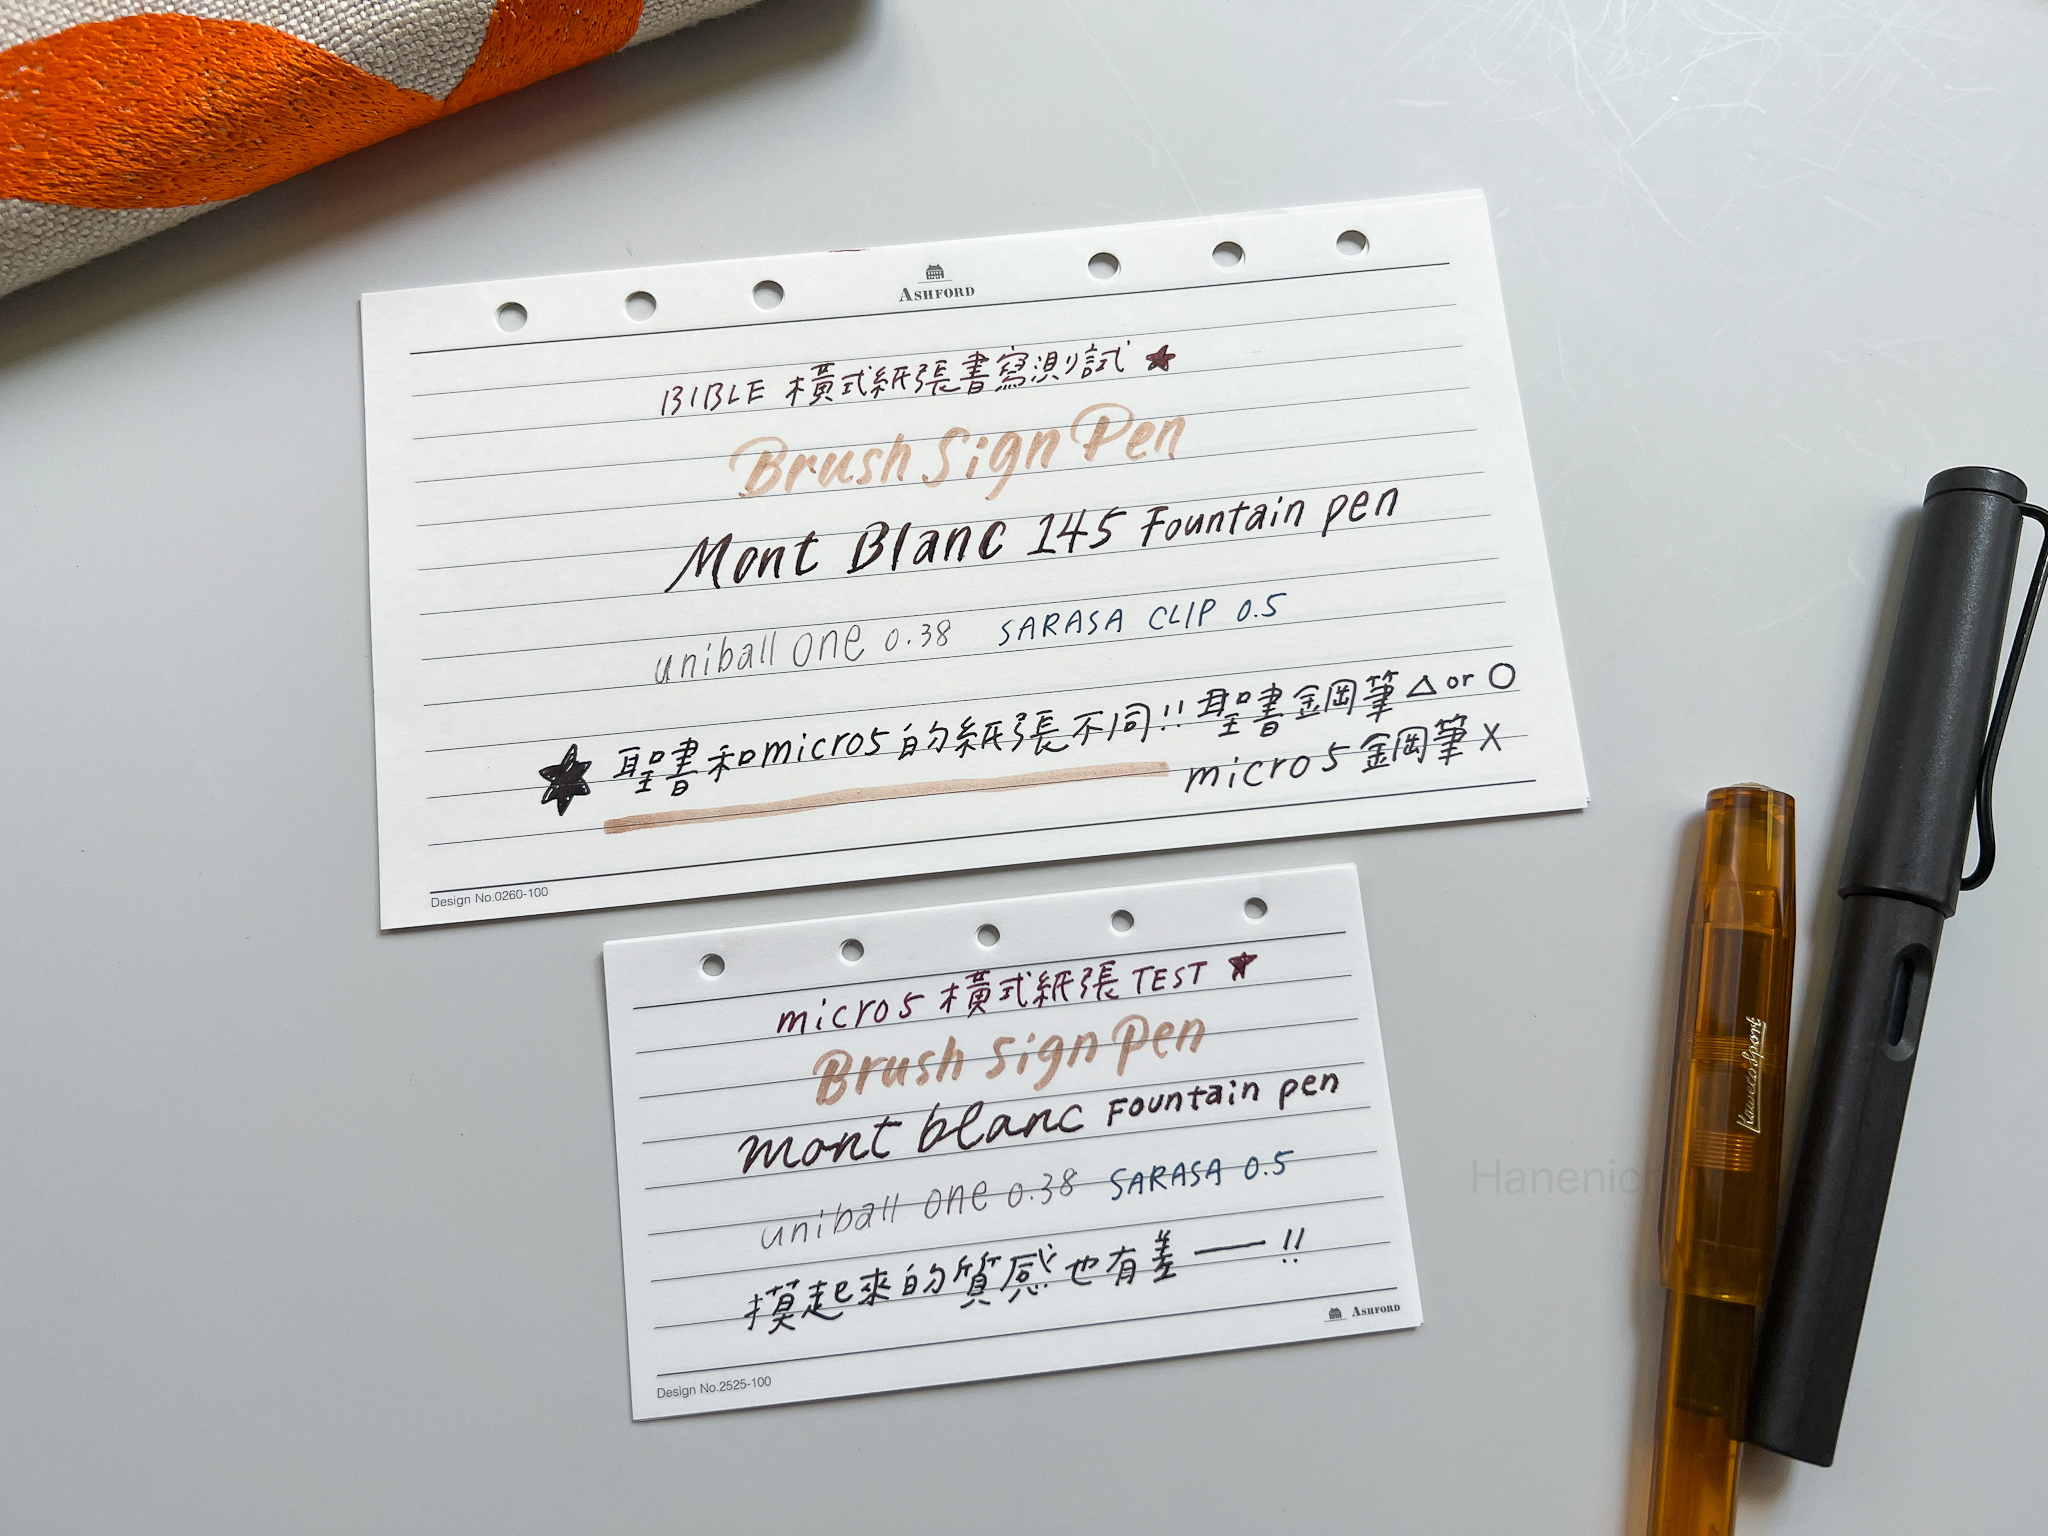 ASHFORD
BIBLE 橫式紙張書寫測試 ★
Brush Sign Pen
Mont Blanc 145 Fountain pen
uniball one 0.38 SARASA CLIP 0.5
★ 聖書和micro5的紙張不同!! 聖書鋼筆△or○
micro5鋼筆X
Design No.0260-100
micro5 橫式紙張TEST ★
Brush Sign Pen
mont blanc Fountain pen
uniball one 0.38 SARASA 0.5
摸起來的質感也有差—!!
ASHFORD
Design No.2525-100
Kaweco Sport